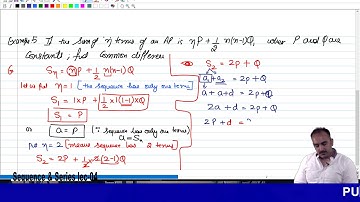 Example 5 If the sum of n terms of an AP is nP + 1/2 n(n-1)Q, where P and Q are
Constants, find Common difference
S_n = nP + 1/2 n(n-1)Q
let us put n = 1 (the sequence has only one term)
S_1 = 1xP + 1/2 x 1(1-1)xQ
S_1 = P
or a = P (∵ sequence has only one term) a = S_1
put n = 2 (means sequence has 2 terms)
S_2 = 2P + 1/2 x 2(2-1)Q
S_2 = 2P + Q
a_1 + a_2 = 2P + Q
a + a + d = 2P + Q
2a + d = 2P + Q
2P + d =
Sequence & Series lec 04
PU